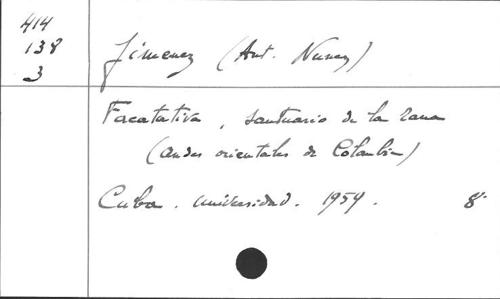 414
138
3
Jimenez (Ant. Nunez)
Facatativa, santuario de la rana
(Andes orientales de Colombia)
Cuba. Universidad. 1959. 8°